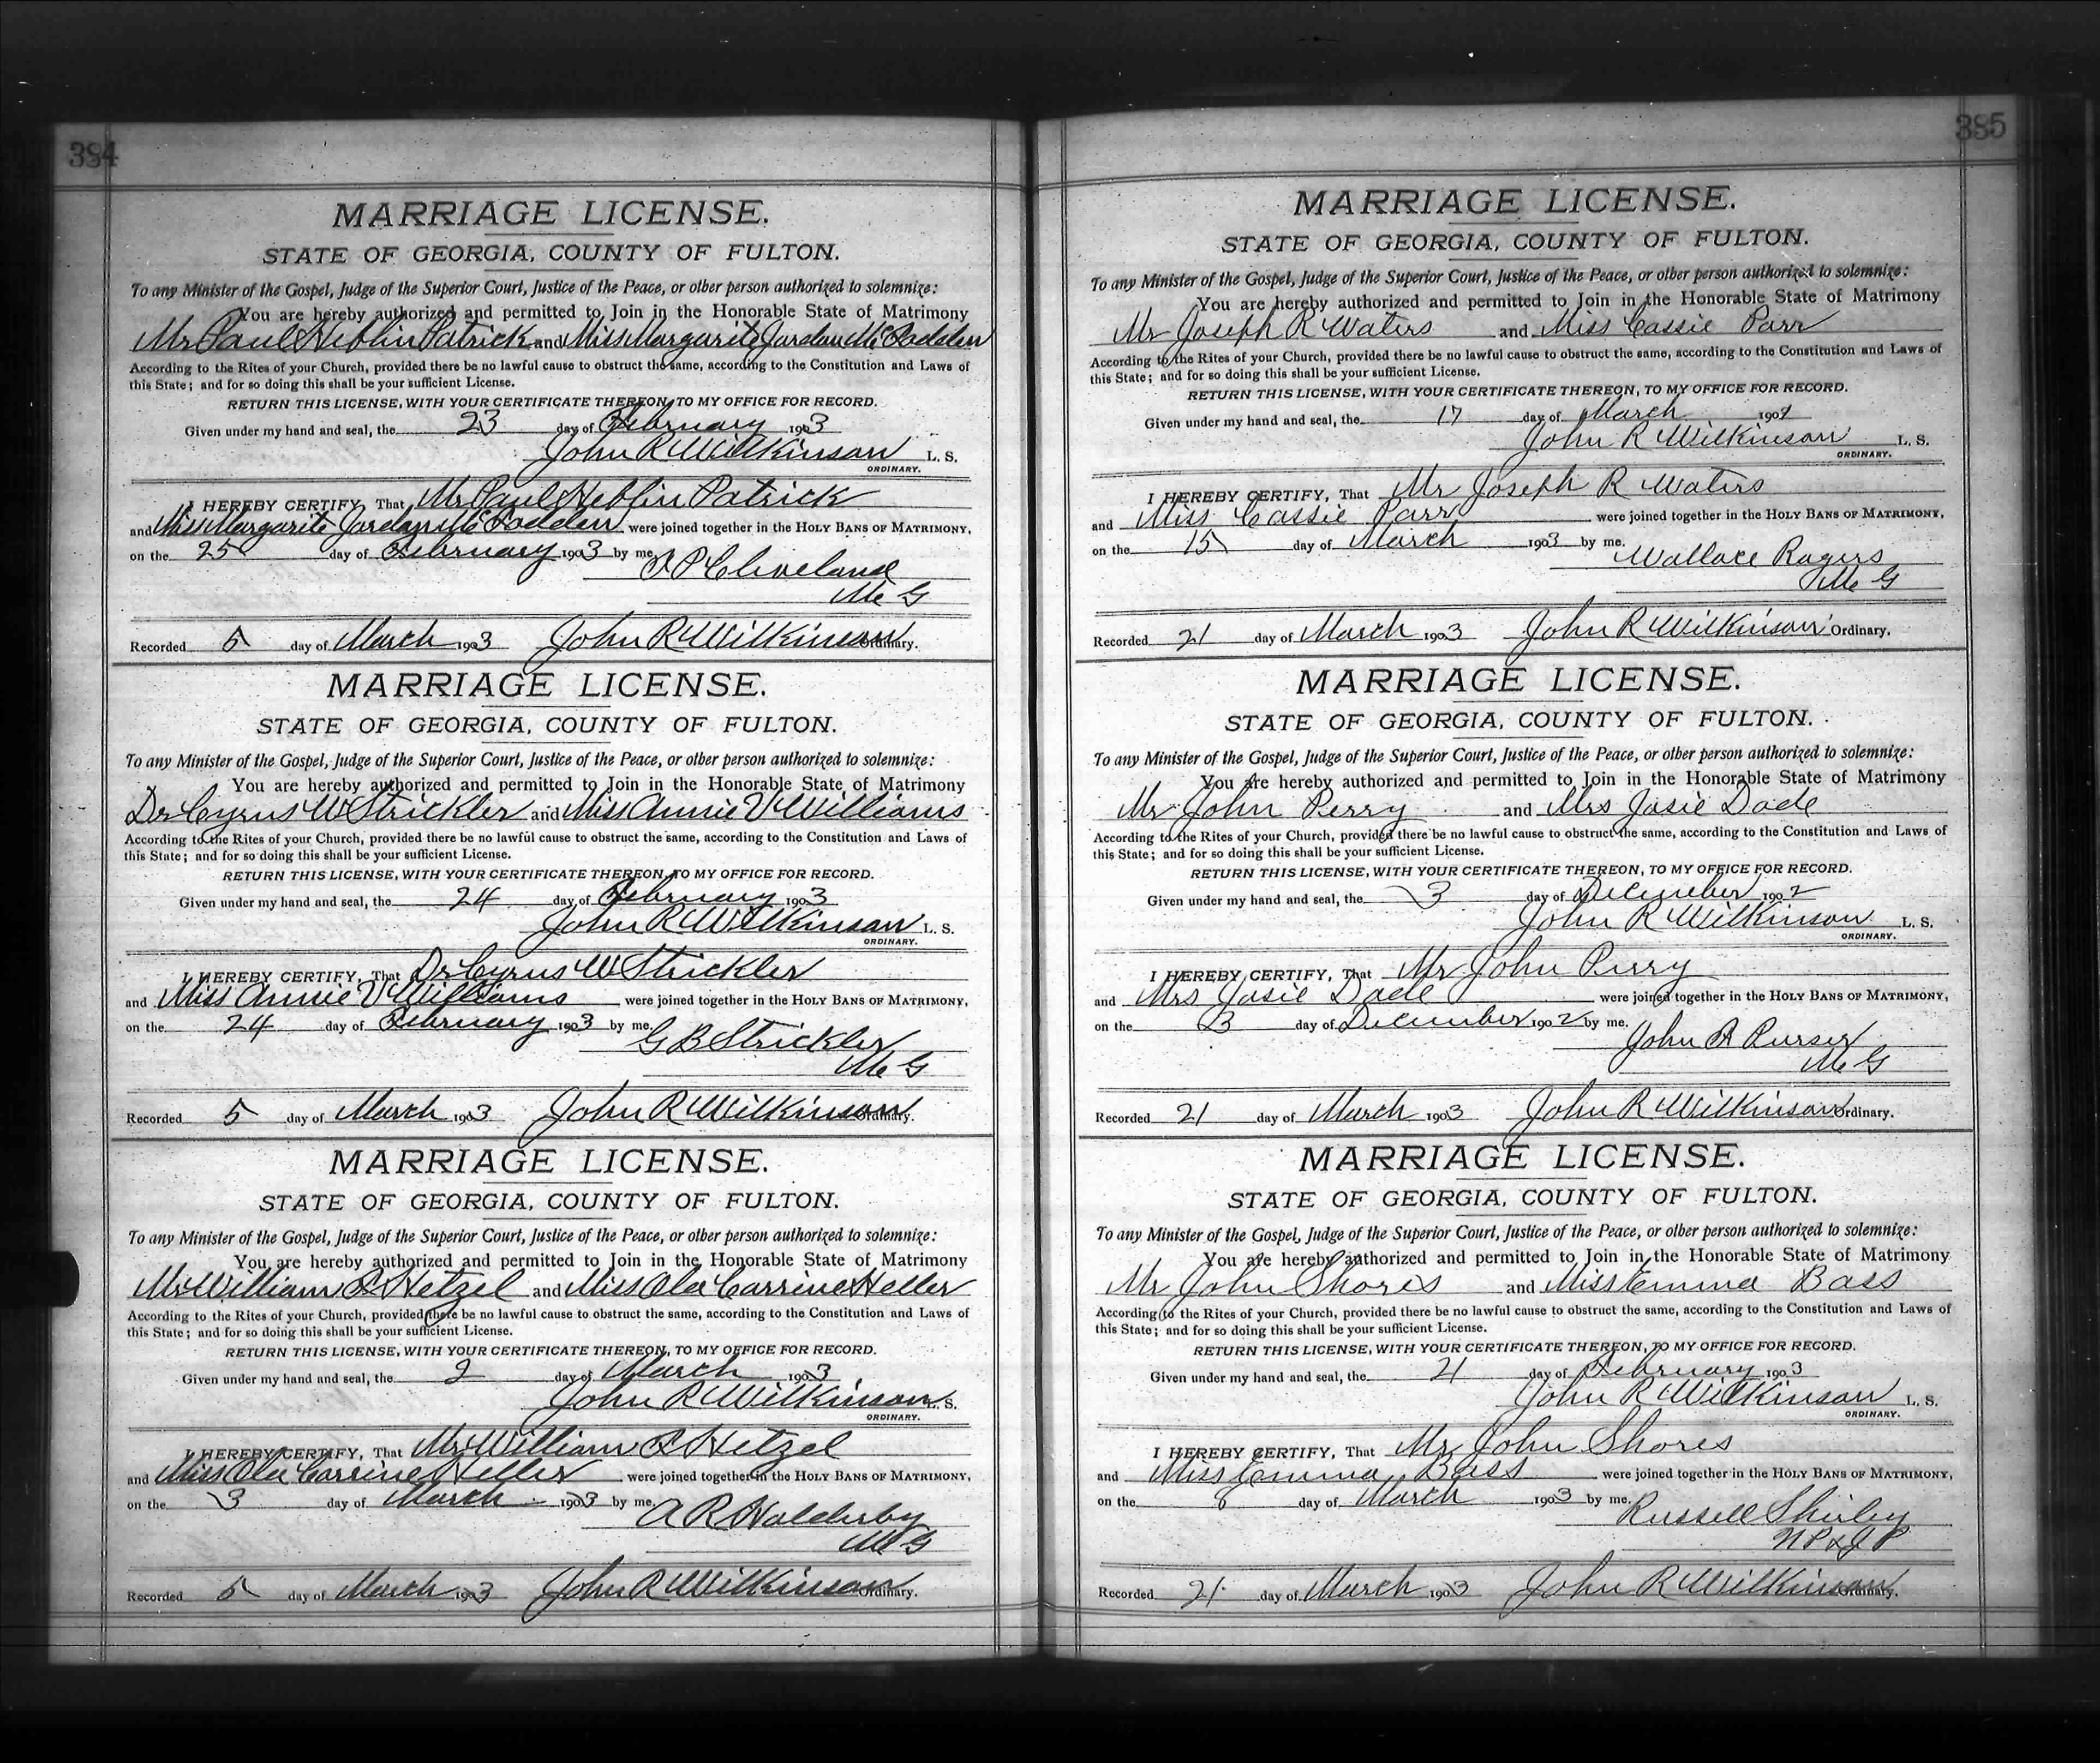 384
MARRIAGE LICENSE.
STATE OF GEORGIA, COUNTY OF FULTON.
To any Minister of the Gospel, Judge of the Superior Court, Justice of the Peace, or other person authorized to solemnize:
You are hereby authorized and permitted to Join in the Honorable State of Matrimony
Mr Paul Patrick and Miss Margarite Jordan
According to the Rites of your Church, provided there be no lawful cause to obstruct the same, according to the Constitution and Laws of
this State; and for so doing this shall be your sufficient License.
RETURN THIS LICENSE, WITH YOUR CERTIFICATE THEREON, TO MY OFFICE FOR RECORD.
Given under my hand and seal, the 23 day of February 1903
John R Wilkinson L. S.
ORDINARY.
I HEREBY CERTIFY, That Mr Paul Patrick
and Miss Margarite Jordan were joined together in the HOLY BANS OF MATRIMONY,
on the 25 day of February 1903 by me.
Cleveland
M G
Recorded 5 day of March 1903 John R Wilkinson Ordinary.
MARRIAGE LICENSE.
STATE OF GEORGIA, COUNTY OF FULTON.
To any Minister of the Gospel, Judge of the Superior Court, Justice of the Peace, or other person authorized to solemnize:
You are hereby authorized and permitted to Join in the Honorable State of Matrimony
Dr Cyrus W Strickler and Miss Annie V Williams
According to the Rites of your Church, provided there be no lawful cause to obstruct the same, according to the Constitution and Laws of
this State; and for so doing this shall be your sufficient License.
RETURN THIS LICENSE, WITH YOUR CERTIFICATE THEREON, TO MY OFFICE FOR RECORD.
Given under my hand and seal, the 24 day of February 1903
John R Wilkinson L. S.
ORDINARY.
I HEREBY CERTIFY, That Dr Cyrus W Strickler
and Miss Annie V Williams were joined together in the HOLY BANS OF MATRIMONY,
on the 24 day of February 1903 by me.
G B Strickler
M G
Recorded 5 day of March 1903 John R Wilkinson Ordinary.
MARRIAGE LICENSE.
STATE OF GEORGIA, COUNTY OF FULTON.
To any Minister of the Gospel, Judge of the Superior Court, Justice of the Peace, or other person authorized to solemnize:
You are hereby authorized and permitted to Join in the Honorable State of Matrimony
Mr William Hetzel and Miss Ola Carrine Heller
According to the Rites of your Church, provided there be no lawful cause to obstruct the same, according to the Constitution and Laws of
this State; and for so doing this shall be your sufficient License.
RETURN THIS LICENSE, WITH YOUR CERTIFICATE THEREON, TO MY OFFICE FOR RECORD.
Given under my hand and seal, the 2 day of March 1903
John R Wilkinson L. S.
ORDINARY.
I HEREBY CERTIFY, That Mr William Hetzel
and Miss Ola Carrine Heller were joined together in the HOLY BANS OF MATRIMONY,
on the 3 day of March 1903 by me.
A R Holderby
M G
Recorded 5 day of March 1903 John R Wilkinson Ordinary.
385
MARRIAGE LICENSE.
STATE OF GEORGIA, COUNTY OF FULTON.
To any Minister of the Gospel, Judge of the Superior Court, Justice of the Peace, or other person authorized to solemnize:
You are hereby authorized and permitted to Join in the Honorable State of Matrimony
Mr Joseph R Waters and Miss Cassie Parr
According to the Rites of your Church, provided there be no lawful cause to obstruct the same, according to the Constitution and Laws of
this State; and for so doing this shall be your sufficient License.
RETURN THIS LICENSE, WITH YOUR CERTIFICATE THEREON, TO MY OFFICE FOR RECORD.
Given under my hand and seal, the 17 day of March
John R Wilkinson L. S.
ORDINARY.
I HEREBY CERTIFY, That Mr Joseph R Waters
and Miss Cassie Parr were joined together in the HOLY BANS OF MATRIMONY,
on the 15 day of March 1903 by me.
Wallace Rogers
M G
Recorded 21 day of March 1903 John R Wilkinson Ordinary.
MARRIAGE LICENSE.
STATE OF GEORGIA, COUNTY OF FULTON.
To any Minister of the Gospel, Judge of the Superior Court, Justice of the Peace, or other person authorized to solemnize:
You are hereby authorized and permitted to Join in the Honorable State of Matrimony
Mr John Perry and Mrs Josie Dade
According to the Rites of your Church, provided there be no lawful cause to obstruct the same, according to the Constitution and Laws of
this State; and for so doing this shall be your sufficient License.
RETURN THIS LICENSE, WITH YOUR CERTIFICATE THEREON, TO MY OFFICE FOR RECORD.
Given under my hand and seal, the 3 day of December 1902
John R Wilkinson L. S.
ORDINARY.
I HEREBY CERTIFY, That Mr John Perry
and Mrs Josie Dade were joined together in the HOLY BANS OF MATRIMONY,
on the 3 day of December 1902 by me.
John Purser
M G
Recorded 21 day of March 1903 John R Wilkinson Ordinary.
MARRIAGE LICENSE.
STATE OF GEORGIA, COUNTY OF FULTON.
To any Minister of the Gospel, Judge of the Superior Court, Justice of the Peace, or other person authorized to solemnize:
You are hereby authorized and permitted to Join in the Honorable State of Matrimony
Mr John Shores and Miss Emma Bass
According to the Rites of your Church, provided there be no lawful cause to obstruct the same, according to the Constitution and Laws of
this State; and for so doing this shall be your sufficient License.
RETURN THIS LICENSE, WITH YOUR CERTIFICATE THEREON, TO MY OFFICE FOR RECORD.
Given under my hand and seal, the 21 day of February 1903
John R Wilkinson L. S.
ORDINARY.
I HEREBY CERTIFY, That Mr John Shores
and Miss Emma Bass were joined together in the HOLY BANS OF MATRIMONY,
on the 8 day of March 1903 by me.
Russell Shirley
N P & J P
Recorded 21 day of March 1903 John R Wilkinson Ordinary.